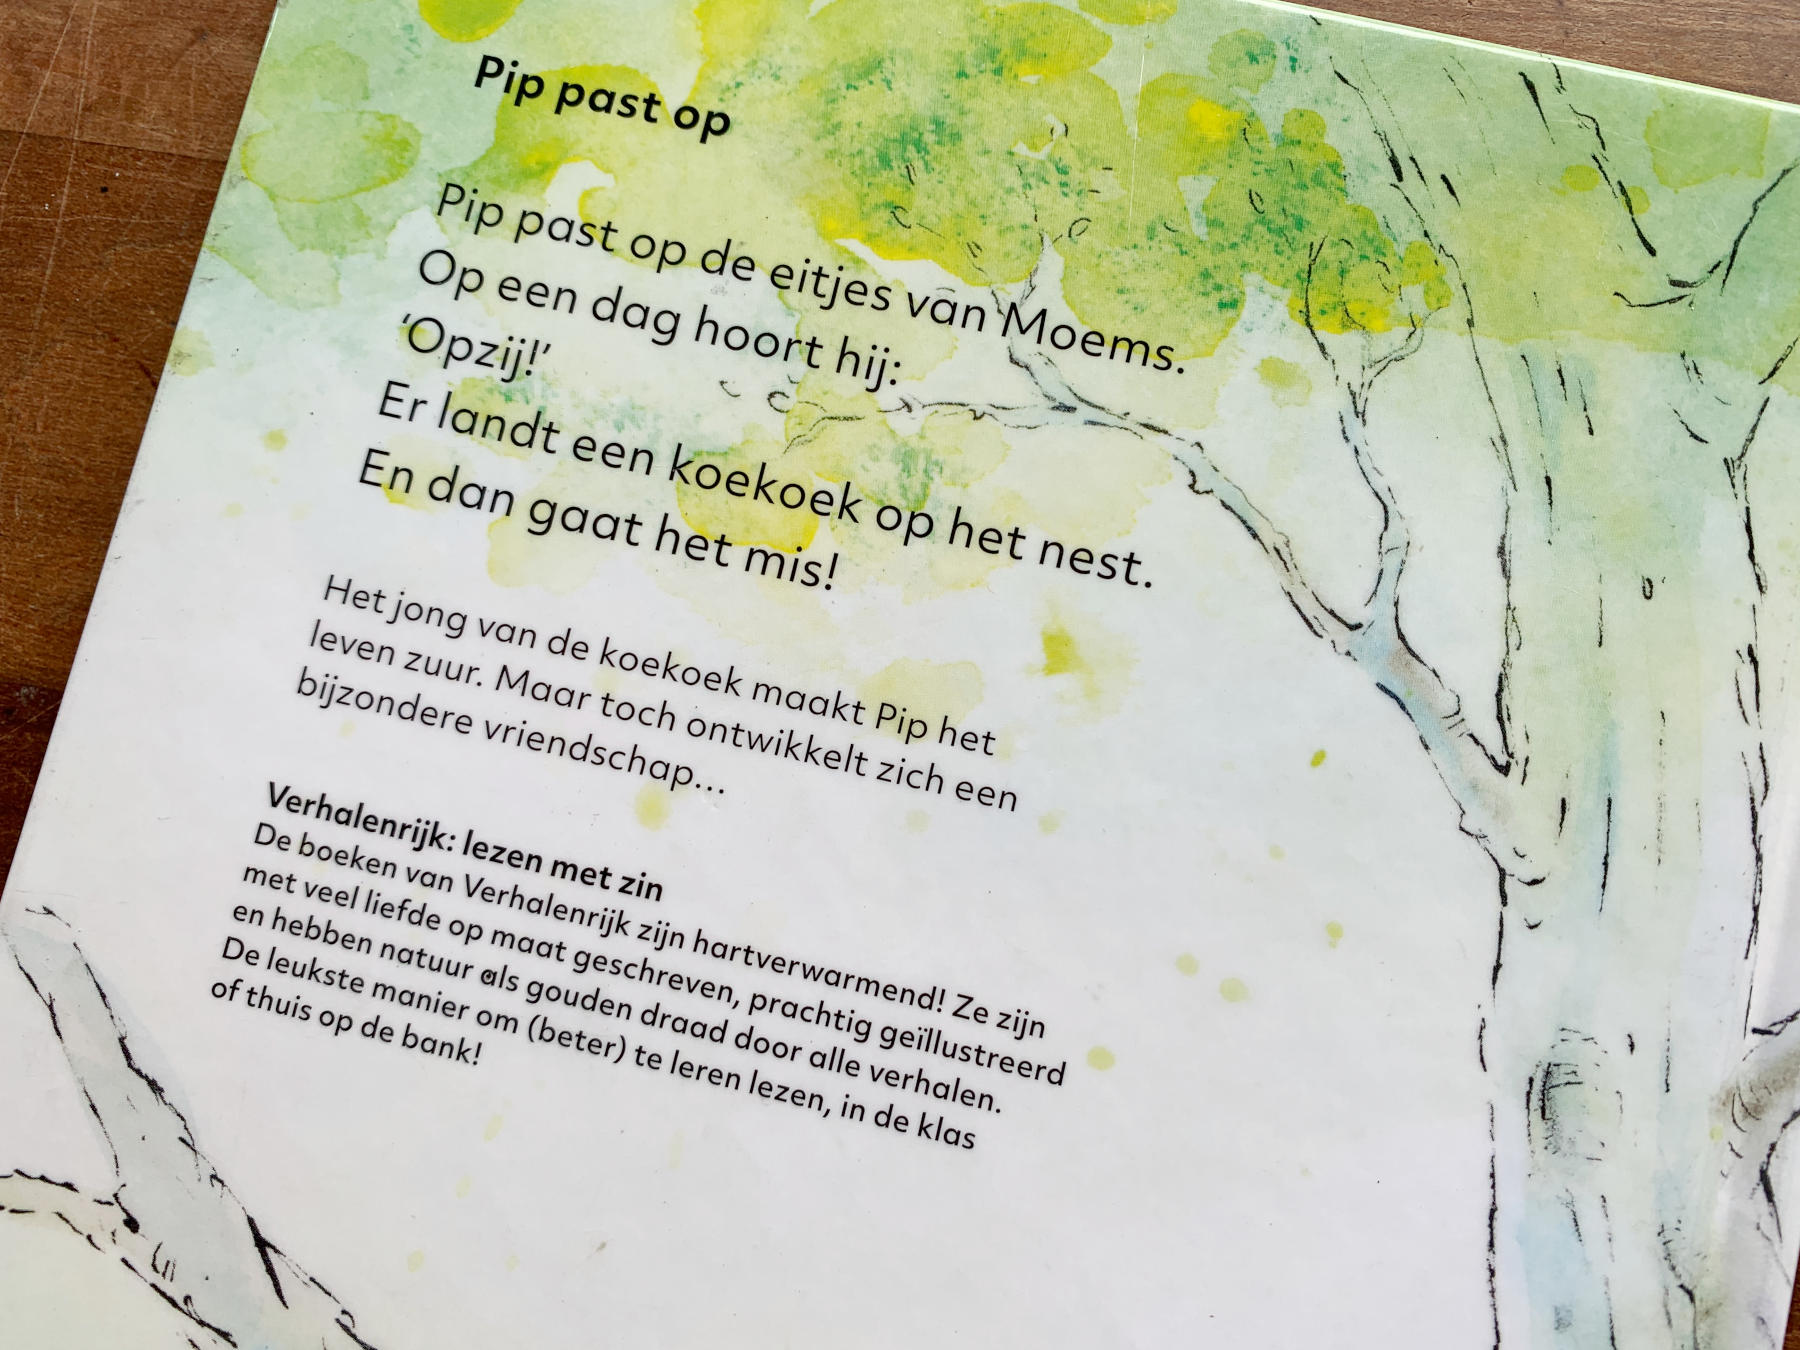 Pip past op
Pip past op de eitjes van Moems.
Op een dag hoort hij:
‘Opzij!’
Er landt een koekoek op het nest.
En dan gaat het mis!
Het jong van de koekoek maakt Pip het
leven zuur. Maar toch ontwikkelt zich een
bijzondere vriendschap...
Verhalenrijk: lezen met zin
De boeken van Verhalenrijk zijn hartverwarmend! Ze zijn
met veel liefde op maat geschreven, prachtig geïllustreerd
en hebben natuur als gouden draad door alle verhalen.
De leukste manier om (beter) te leren lezen, in de klas
of thuis op de bank!